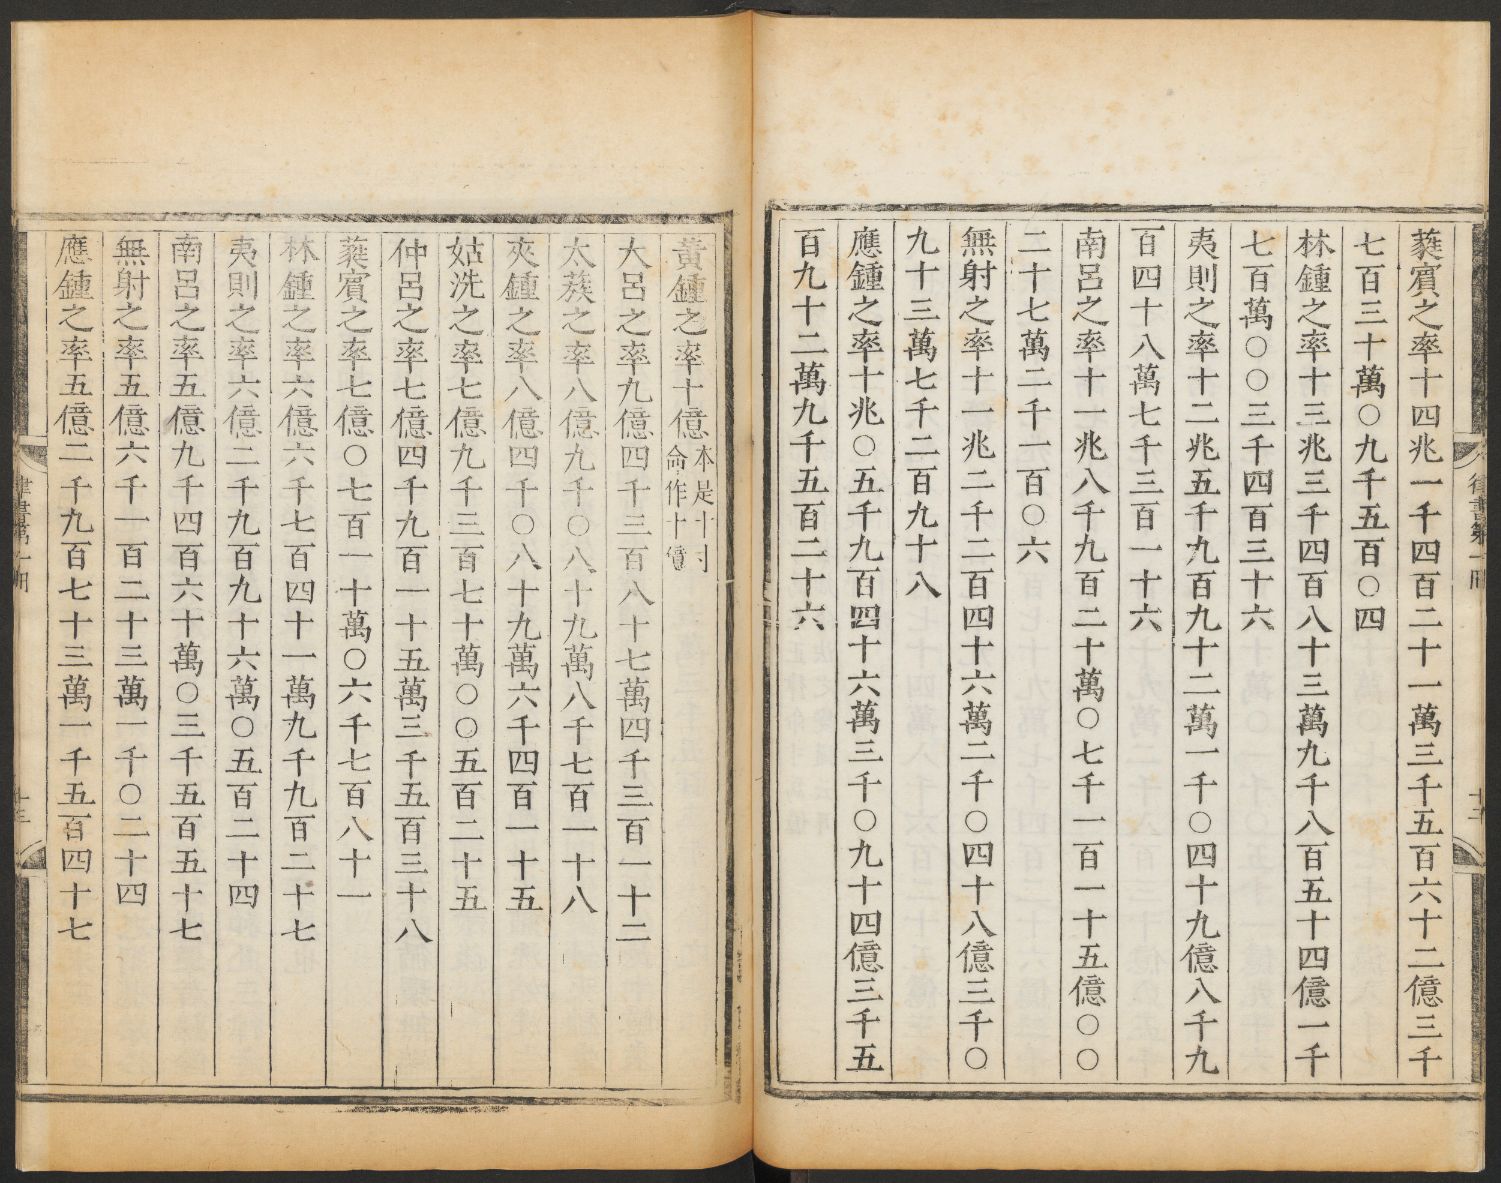 律書第一冊
十二
蕤賓之率十四兆一千四百二十一萬三千五百六十二億三千
七百三十萬〇九千五百〇四
林鍾之率十三兆三千四百八十三萬九千八百五十四億一千
七百萬〇〇三千四百三十六
夷則之率十二兆五千九百九十二萬一千〇四十九億八千九
百四十八萬七千三百一十六
南呂之率十一兆八千九百二十萬〇七千一百一十五億〇〇
二十七萬二千一百〇六
無射之率十一兆二千二百四十六萬二千〇四十八億三千〇
九十三萬七千二百九十八
應鍾之率十兆〇五千九百四十六萬三千〇九十四億三千五
百九十二萬九千五百二十六
黃鍾之率十億本是十寸命作十億
大呂之率九億四千三百八十七萬四千三百一十二
太蔟之率八億九千〇八十九萬八千七百一十八
夾鍾之率八億四千〇八十九萬六千四百一十五
姑洗之率七億九千三百七十萬〇〇五百二十五
仲呂之率七億四千九百一十五萬三千五百三十八
蕤賓之率七億〇七百一十萬〇六千七百八十一
林鍾之率六億六千七百四十一萬九千九百二十七
夷則之率六億二千九百九十六萬〇五百二十四
南呂之率五億九千四百六十萬〇三千五百五十七
無射之率五億六千一百二十三萬一千〇二十四
應鍾之率五億二千九百七十三萬一千五百四十七
律書第一冊
十三